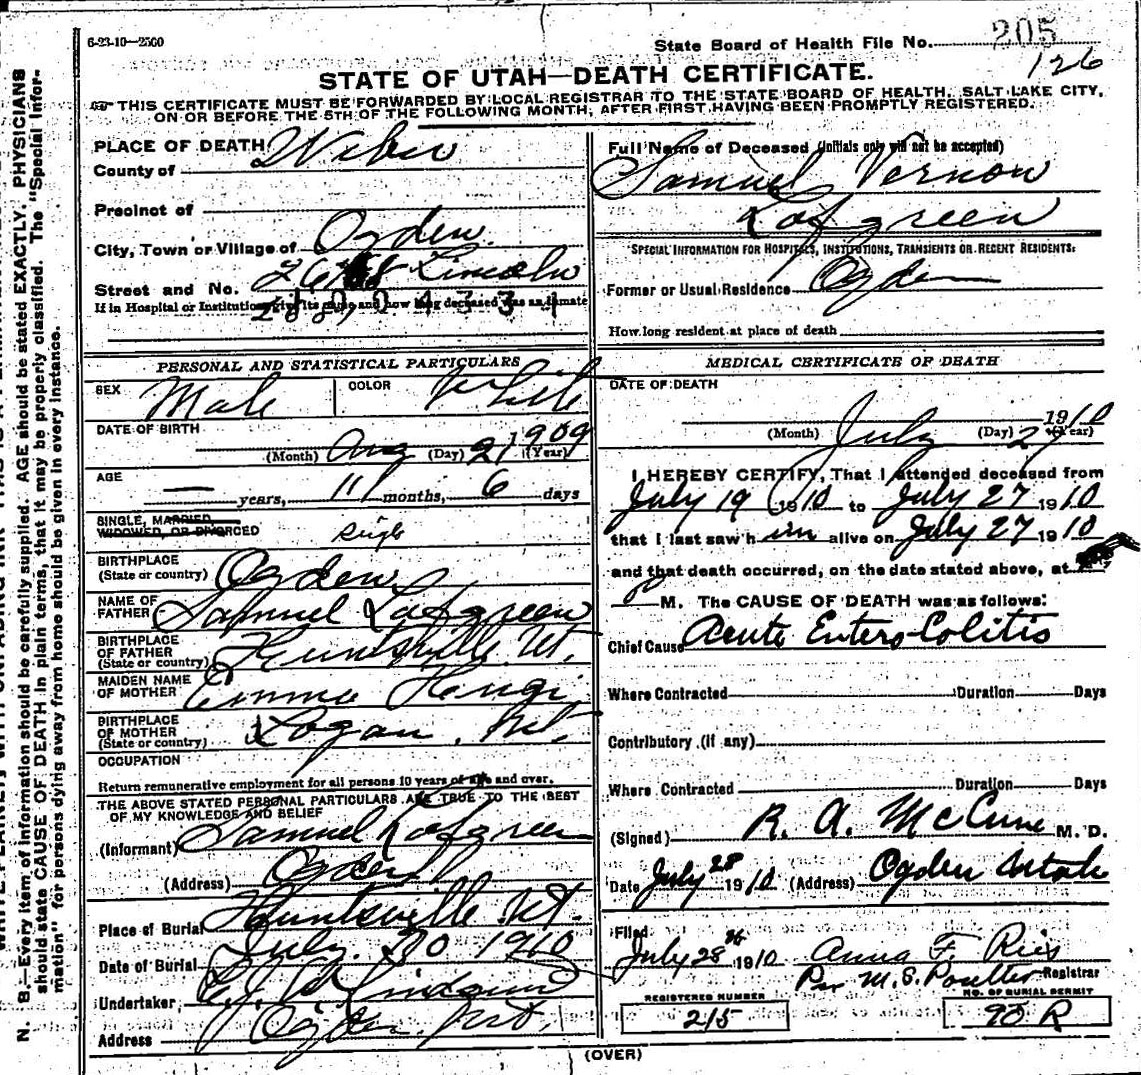 6-23-10—2500
State Board of Health File No. 205
126
STATE OF UTAH—DEATH CERTIFICATE.
THIS CERTIFICATE MUST BE FORWARDED BY LOCAL REGISTRAR TO THE STATE BOARD OF HEALTH, SALT LAKE CITY,
ON OR BEFORE THE 5TH OF THE FOLLOWING MONTH, AFTER FIRST HAVING BEEN PROMPTLY REGISTERED.
PLACE OF DEATH
County of Weber
Precinct of
City, Town or Village of Ogden
Street and No. Lincoln
If in Hospital or Institution, give its name and how long deceased was an inmate
PERSONAL AND STATISTICAL PARTICULARS
SEX Male COLOR White
DATE OF BIRTH
(Month) Aug (Day) 21 1909 (Year)
AGE
— years, 11 months, 6 days
SINGLE, MARRIED,
WIDOWED, OR DIVORCED single
BIRTHPLACE
(State or country) Ogden
NAME OF
FATHER Samuel Lofgreen
BIRTHPLACE
OF FATHER
(State or country) Huntsville Ut.
MAIDEN NAME
OF MOTHER Emma
BIRTHPLACE
OF MOTHER
(State or country) Logan, Ut.
OCCUPATION
Return remunerative employment for all persons 10 years of age and over.
THE ABOVE STATED PERSONAL PARTICULARS ARE TRUE TO THE BEST
OF MY KNOWLEDGE AND BELIEF
(Informant) Samuel Lofgreen
(Address) Ogden
Place of Burial Huntsville Ut.
Date of Burial July 30 1910
Undertaker
Address Ogden, Ut.
Full Name of Deceased (Initials only will not be accepted)
Samuel Vernon
Lofgreen
SPECIAL INFORMATION FOR HOSPITALS, INSTITUTIONS, TRANSIENTS OR RECENT RESIDENTS:
Former or Usual Residence Ogden
How long resident at place of death
MEDICAL CERTIFICATE OF DEATH
DATE OF DEATH
(Month) July (Day) 27 1910 (Year)
I HEREBY CERTIFY, That I attended deceased from
July 19 1910 to July 27 1910
that I last saw h im alive on July 27 1910
and that death occurred, on the date stated above, at
M. The CAUSE OF DEATH was as follows:
Chief Cause Acute Entero-Colitis
Where Contracted Duration Days
Contributory (if any)
Where Contracted Duration Days
(Signed) R. A. McCune M. D.
Date July 28 1910 (Address) Ogden Utah
Filed
July 28 1910 Anna F. Reis
Per M. S. Poulter Registrar
REGISTERED NUMBER
215
NO. OF BURIAL PERMIT
90 R
(OVER)
N. B.—Every item of information should be carefully supplied. AGE should be stated EXACTLY. PHYSICIANS
should state CAUSE OF DEATH in plain terms, that it may be properly classified. The "Special Infor-
mation" for persons dying away from home should be given in every instance.